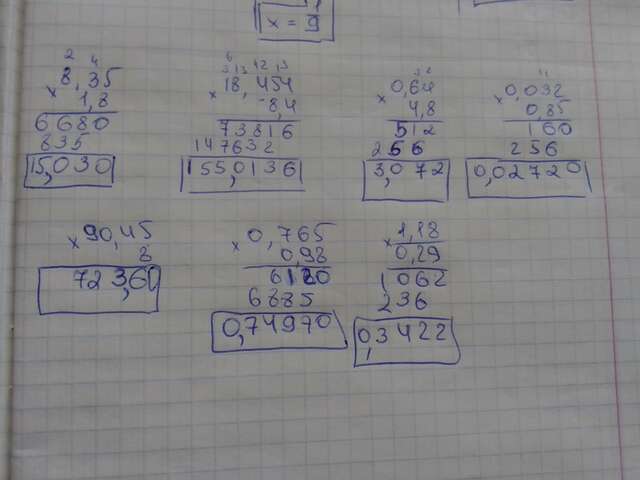 x = 9
2 4
× 8,35
1,8
6680
835
15,030
× 18,454
8,4
73816
147632
155,0136
× 0,64
4,8
512
256
3,072
× 0,032
0,85
160
256
0,02720
× 90,45
8
723,60
× 0,765
0,98
6120
6885
0,74970
× 1,18
0,29
1062
236
0,3422